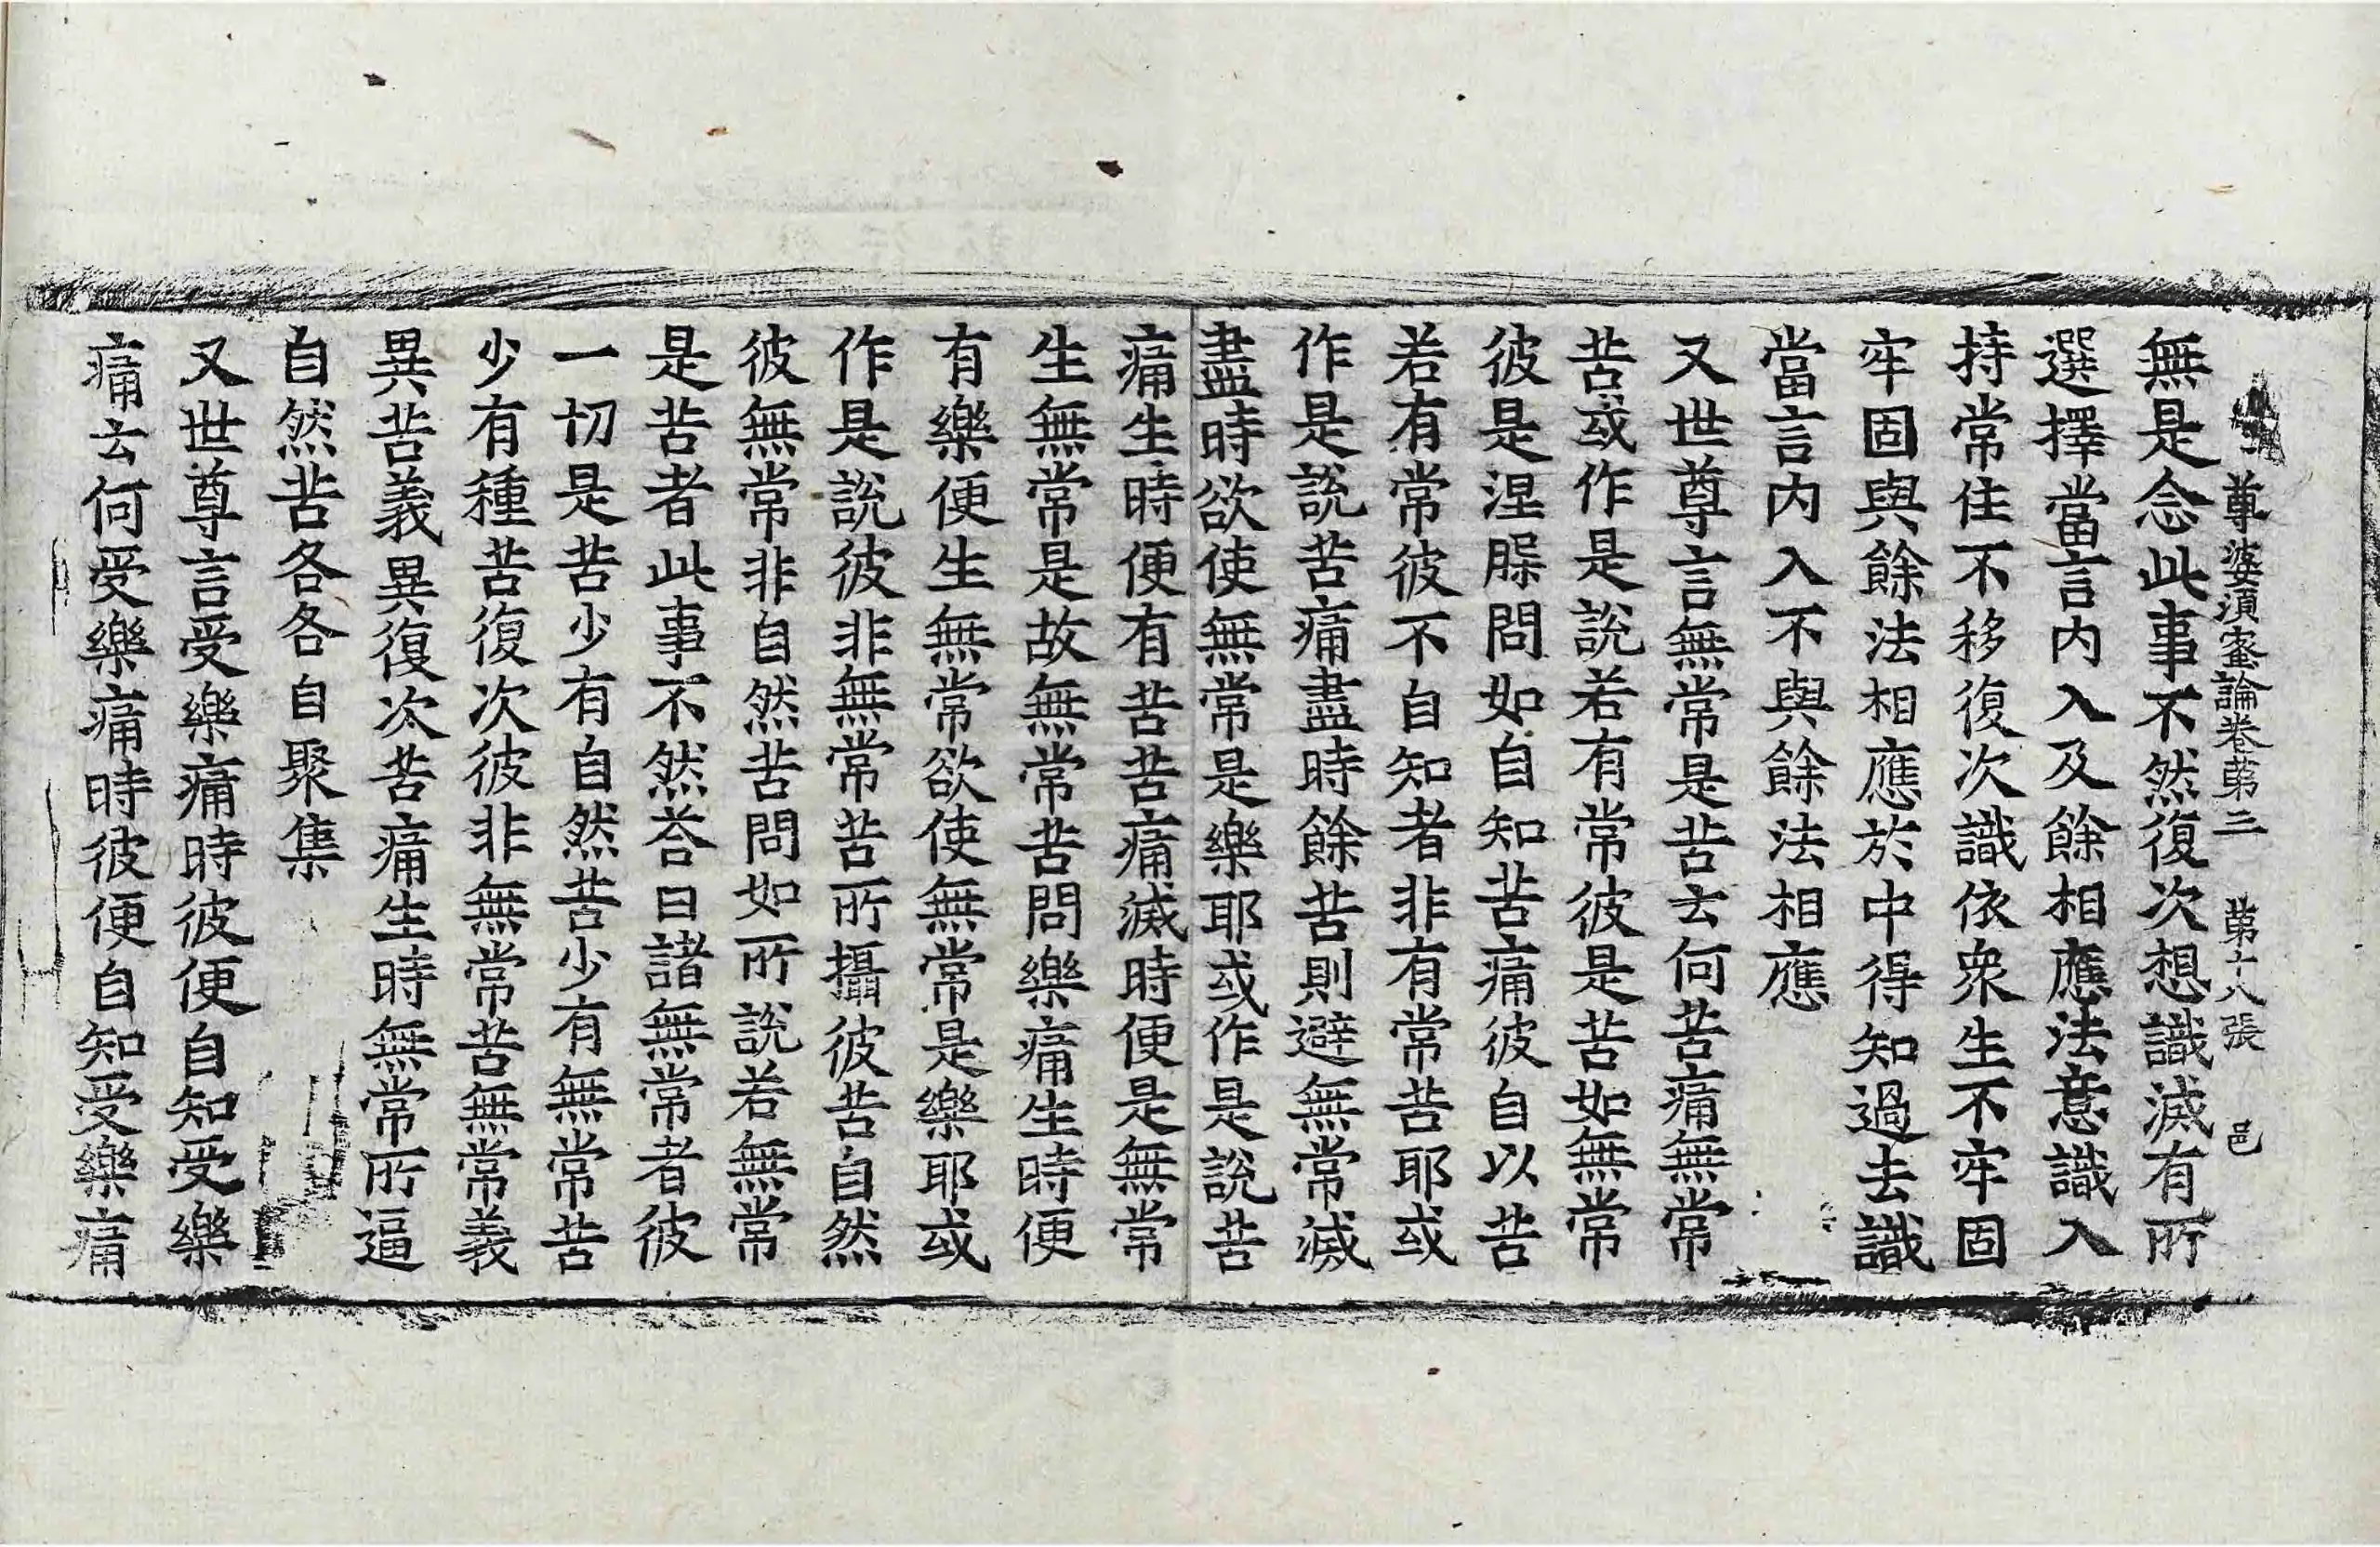 尊婆須蜜論卷苐三 苐十八張 邑
無是念此事不然復次想識滅有所
選擇當言内入及餘相應法意識入
持常住不移復次識依衆生不牢固
牢固與餘法相應於中得知過去識
當言内入不與餘法相應
又世尊言無常是苦云何苦痛無常
苦或作是說若有常彼是苦如無常
彼是涅脲問如自知苦痛彼自以苦
若有常彼不自知者非有常苦耶或
作是說苦痛盡時餘苦則避無常滅
盡時欲使無常是樂耶或作是說苦
痛生時便有苦苦痛滅時便是無常
生無常是故無常苦問樂痛生時便
有樂便生無常欲使無常是樂耶或
作是說彼非無常苦所攝彼苦自然
彼無常非自然苦問如所說若無常
是苦者此事不然荅曰諸無常者彼
一切是苦少有自然苦少有無常苦
少有種苦復次彼非無常苦無常義
異苦義異復次苦痛生時無常所逼
自然苦各各自聚集
又世尊言受樂痛時彼便自知受樂
痛云何受樂痛時彼便自知受樂痛